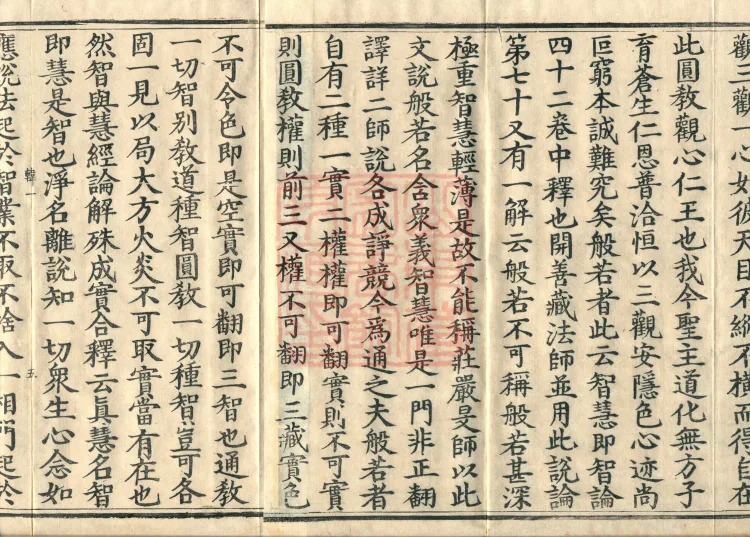 觀三觀一心如彼天目不縱不橫而得自在
此圓教觀心仁王也我今聖王道化無方子
育蒼生仁恩普洽恒以三觀安隱色心迹尚
叵窮本誠難究矣般若者此云智慧即智論
四十二卷中釋也開善藏法師並用此說論
第七十又有一解云般若不可稱般若甚深
極重智慧輕薄是故不能稱莊嚴旻師以此
文說般若名含衆義智慧唯是一門非正翻
譯詳二師說各成諍競今爲通之夫般若者
自有二種一實二權權即可翻實則不可實
則圓教權則前三又權不可翻即三藏實色
不可令色即是空實即可翻即三智也通教
一切智別教道種智圓教一切種智豈可各
固一見以局大方火炎不可取實當有在也
然智與慧經論解殊成實合釋云眞慧名智
即慧是智也淨名離說知一切衆生心念如
應說法起於智業不取不捨入一相門起於
韓一
五